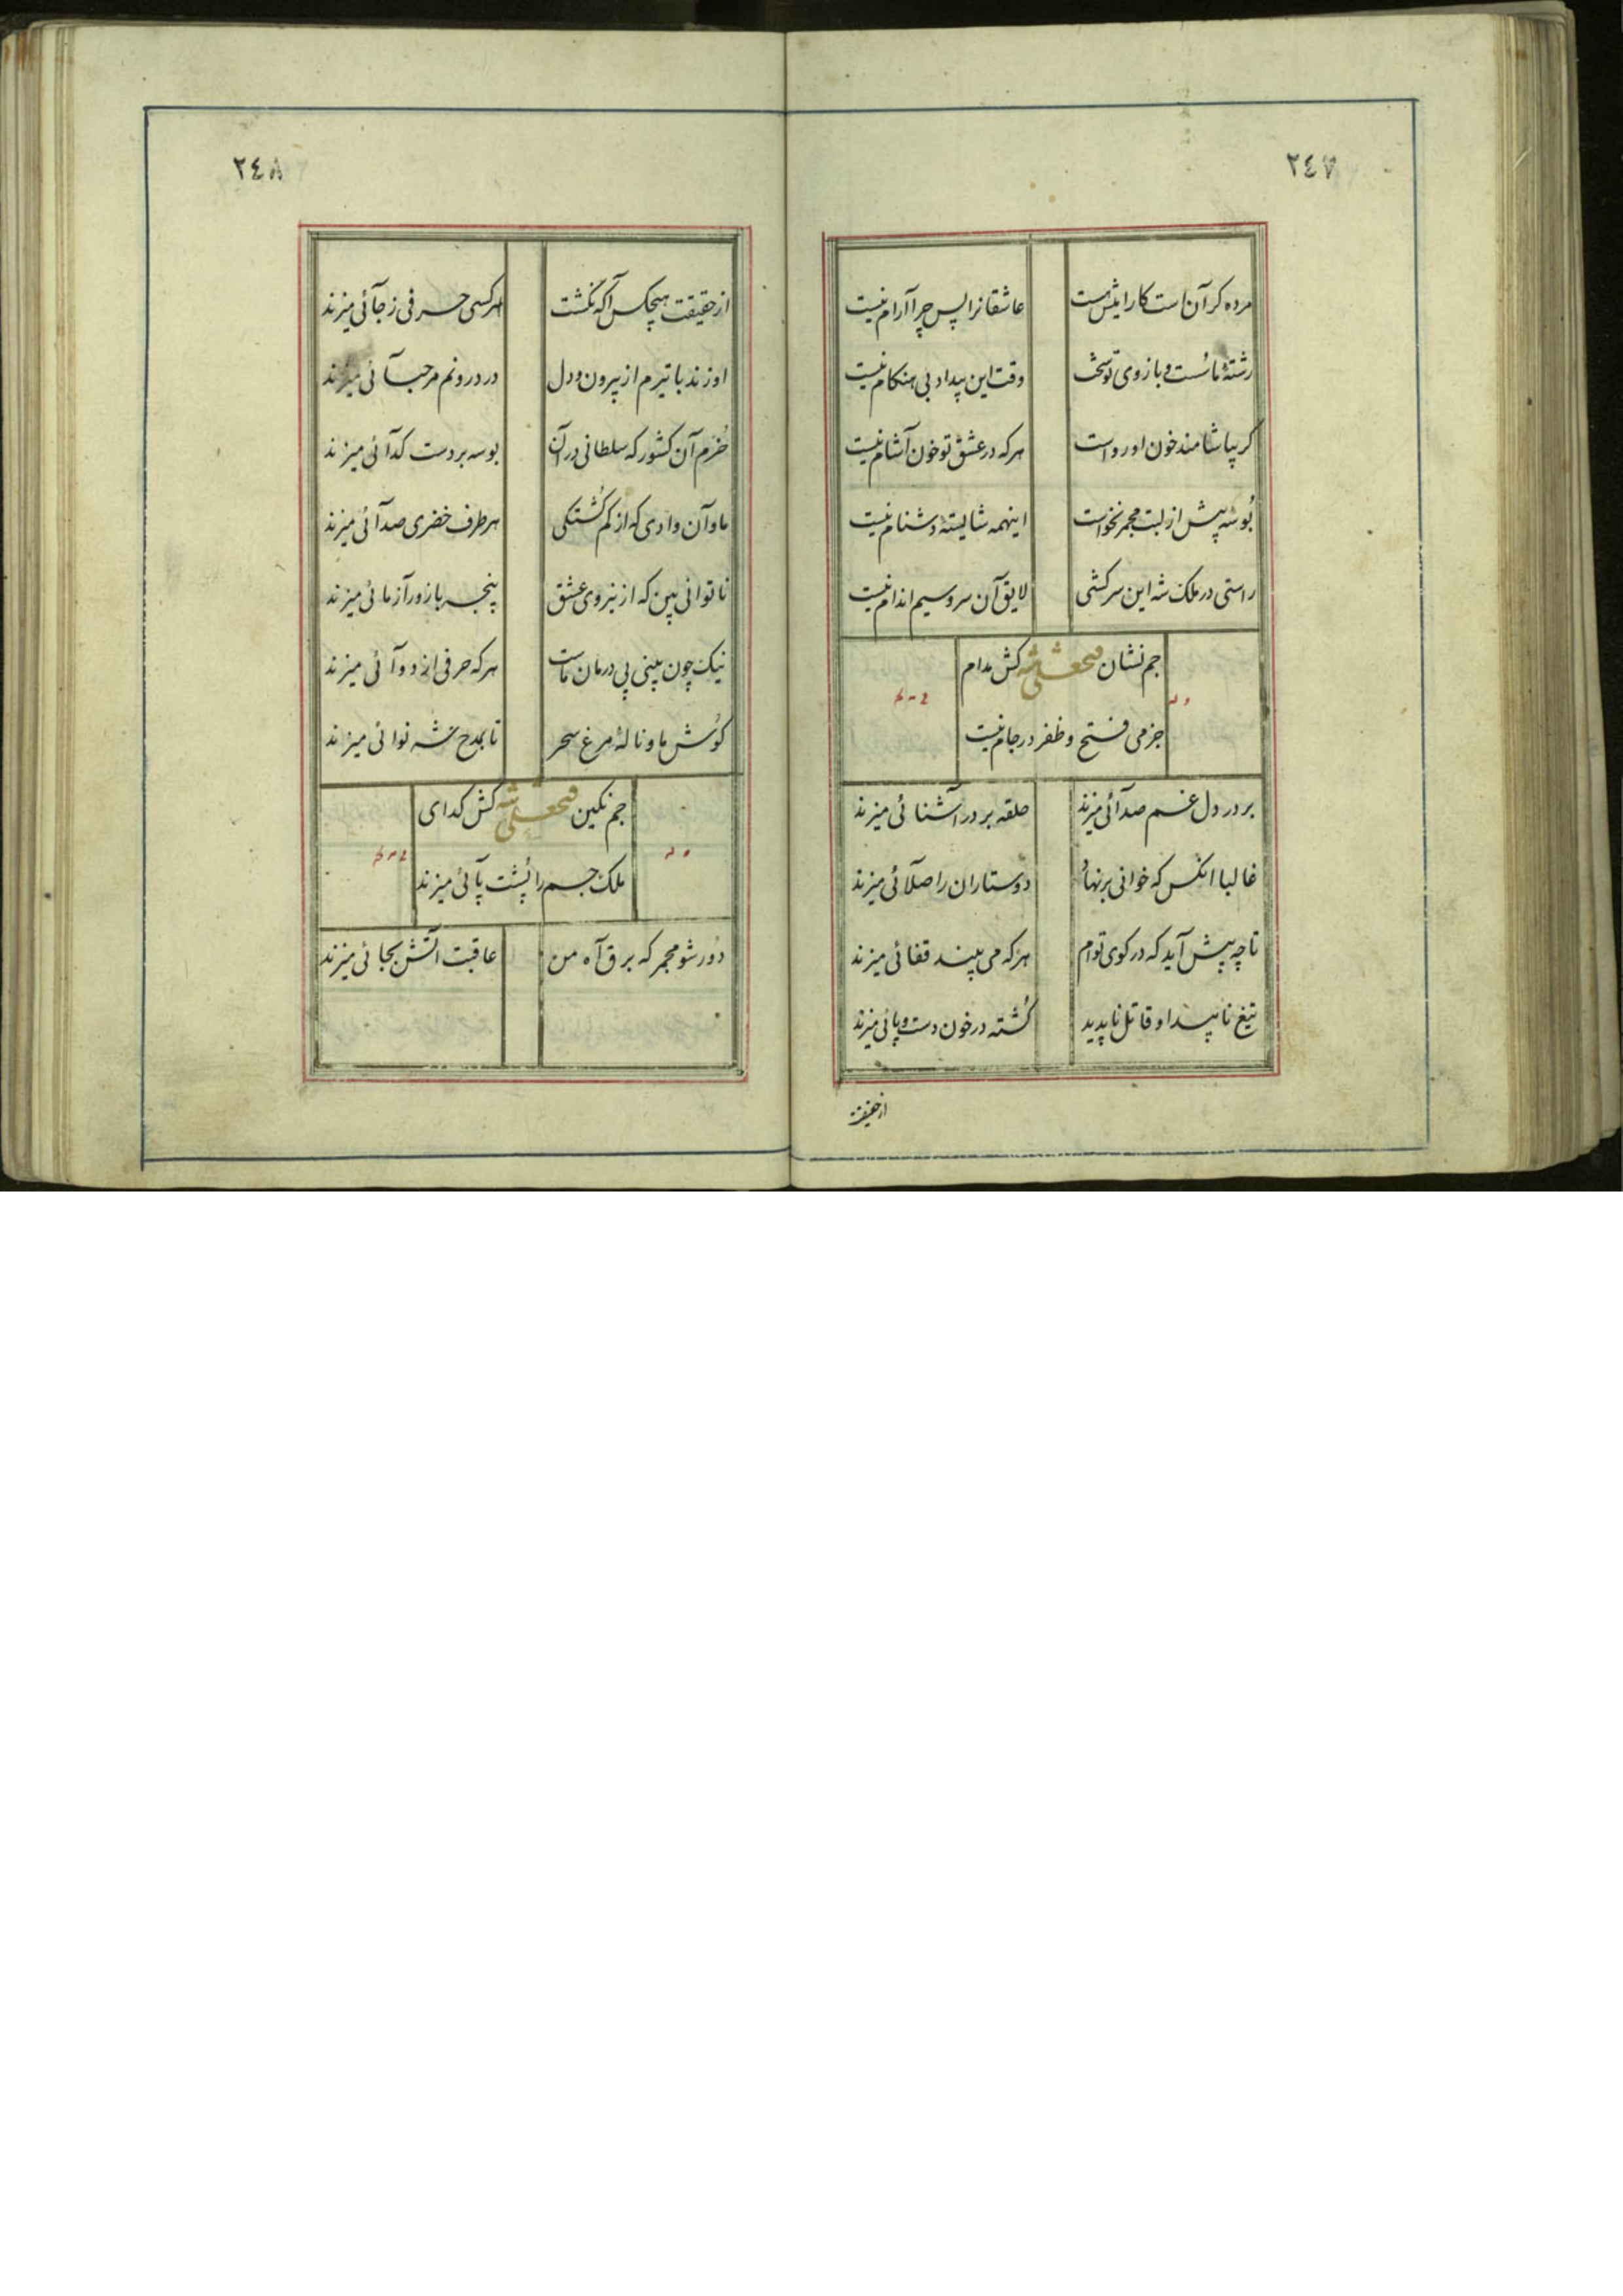 ٢٤٧
مرده کر آن است کارامیش هست
عاشقانرا پس چرا آرام نیست
رشتهٔ ما سست و بازوی تو سخت
وقت این بیداد بی هنکام نیست
کر بیاشامند خون او رواست
هر که در عشق تو خون آشام نیست
بوسه پیش از لبت مجمر نخواست
اینهمه شایستهٔ دشنام نیست
راستی در ملک شه این سرکشی
لایق آن سرو سیم اندام نیست
جم نشان فتحعلی شه کش مدام
جز می فتح و ظفر در جام نیست
بر در دل غم صدائی میزند
حلقه بر در آشنائی میزند
غالبا انکس که خوانی برنهاد
دوستاران را صلائی میزند
تا چه پیش آید که در کوی توام
هر که می بیند قفائی میزند
تیغ ناپیدا و قاتل ناپدید
کشته در خون دست و پائی میزند
از حقیقت
٢٤٨
از حقیقت هیچکس آکه نکشت
هر کسی حرفی ز جائی میزند
او زند با تیرم از بیرون و دل
در درونم مرحبائی میزند
خرم آن کشور که سلطانی در آن
بوسه بر دست کدائی میزند
ما و آن وادی که از کم کشتکی
هر طرف خضری صدائی میزند
ناتوانی بین که از نیروی عشق
پنجه با زورآزمائی میزند
نیک چون بینی پی درمان ماست
هر که حرفی از دوائی میزند
کوش ما و نالهٔ مرغ سحر
تا بمدح شه نوائی میزند
جم نکین فتحعلی شه کش کدای
ملک جم را پشت پائی میزند
دور شو مجمر که برق آه من
عاقبت آتش بجائی میزند